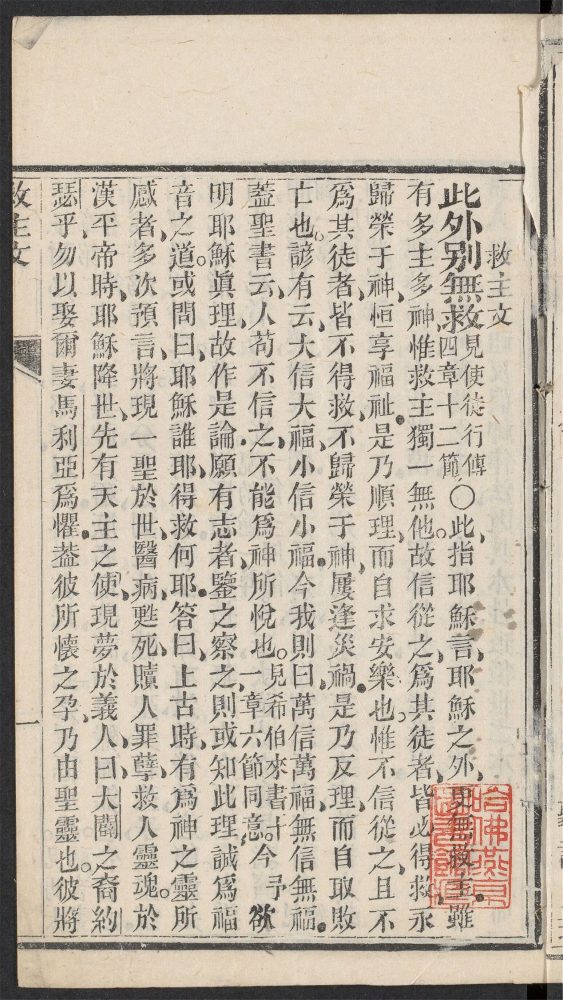 救主文
此外别無救見使徒行傳四章十二節〇此指耶穌言、耶穌之外、更無救主、雖
有多主多神、惟救主獨一無他。故信從之、爲其徒者、皆必得救、永
歸榮于神、恒享福祉。是乃順理、而自求安樂也。惟不信從之、且不
爲其徒者、皆不得救、不歸榮于神、屢逢災禍。是乃反理、而自取敗
亡也。諺有云、大信大福、小信小福。今我則曰、萬信萬福、無信無福。
葢聖書云、人苟不信之、不能爲神所悅也。見希伯來書十一章六節同意。今予欲
明耶穌眞理、故作是論、願有志者、鑒之察之、則或知此理、誠爲福
音之道。或問曰、耶穌誰耶、得救何耶。答曰、上古時、有爲神之靈所
感者、多次預言、將現一聖於世、醫病甦死、贖人罪孽、救人靈魂。於
漢平帝時、耶穌降世、先有天主之使、現夢於義人、曰、大闢之裔約
瑟乎、勿以娶爾妻馬利亞爲懼。葢彼所懷之孕、乃由聖靈也。彼將
救主文
一
哈佛燕京